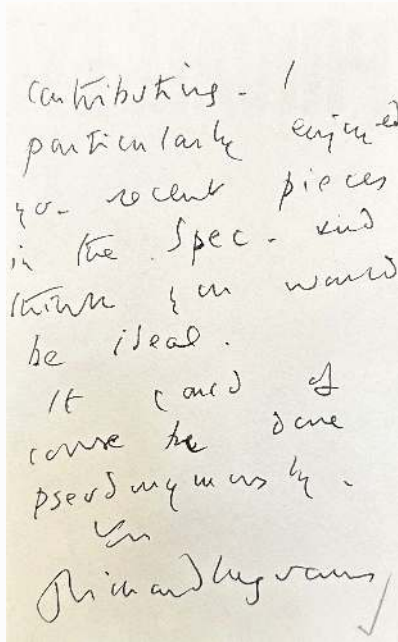 contributing - I
particularly enjoyed
yr. recent pieces
in the Spec - and
think you would
be ideal.
It could of
course be done
pseudonymously.
Yrs
Richard Ingrams